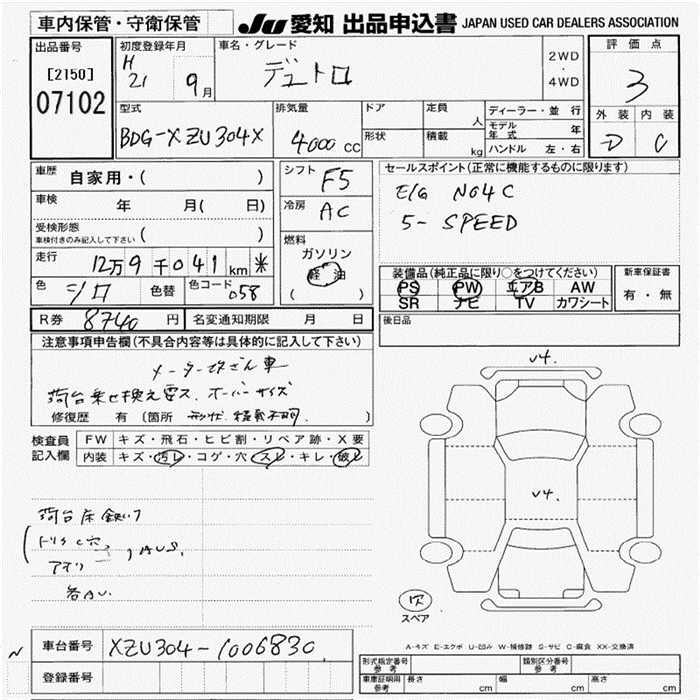 車内保管・守衛保管
JU 愛知 出品申込書 JAPAN USED CAR DEALERS ASSOCIATION
出品番号
[2150]
07102
初度登録年月
H
21 9月
車名・グレード
デュトロ
2WD
・
4WD
評価点
3
外装 内装
D C
型式
BDG-XZU304X
排気量
4000CC
ドア
形状
定員
人
積載
kg
ディーラー・並行
モデル年式 年
ハンドル 左・右
車歴 自家用・( )
車検 年 月( 日)
受検形態
車検付きのみ記入して下さい ( )
走行 12万9千041km *
色 シロ 色替 色コード 058
シフト F5
冷房 AC
燃料
ガソリン
軽油
( )
セールスポイント(正常に機能するものに限ります)
E/G N04C
5- SPEED
装備品(純正品に限り○をつけてください)
PS PW エアB AW
SR ナビ TV カワシート
新車保証書
有・無
R券 8740円 名変通知期限 月 日
後日品
注意事項申告欄(不具合内容等は具体的に記入して下さい)
メーター改ざん車
荷台乗せ換え要ス、オーバーサイズ
修復歴 有 (箇所 )
検査員記入欄
FW キズ・飛石・ヒビ割・リペア跡・X要
内装 キズ・汚レ・コゲ・穴・スレ・キレ・破レ
荷台床
アオリ
各AU.
V4.
V4.
スペア
A-キズ E-エクボ U-凹み W-補修跡 S-サビ C-腐食 XX-交換済
車台番号 XZU304-1006830
登録番号
型式指定番号
参考
類別区分番号
参考
車庫証明用
参考
長さ cm 幅 cm 高さ cm